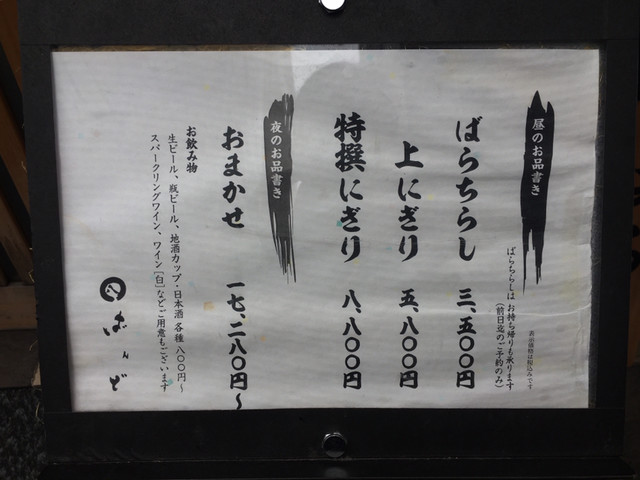 昼のお品書き
表示価格は税込みです
ばらちらしは お持ち帰りも承ります
(前日迄のご予約のみ)
ばらちらし 三、五〇〇円
上にぎり 五、八〇〇円
特撰にぎり 八、八〇〇円
夜のお品書き
おまかせ 一七、二八〇円〜
お飲み物
生ビール、瓶ビール、地酒カップ・日本酒 各種 八〇〇円〜
スパークリングワイン、ワイン[白]などご用意もございます